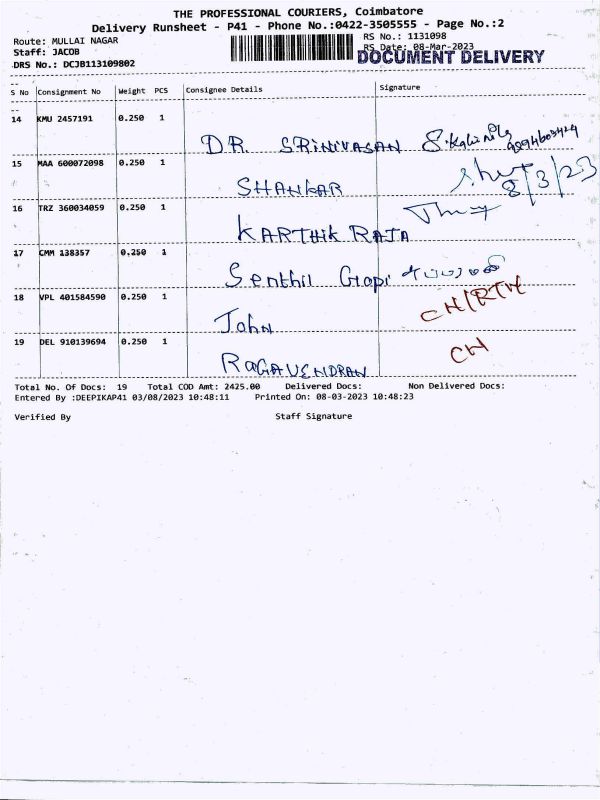 THE PROFESSIONAL COURIERS, Coimbatore
Delivery Runsheet - P41 - Phone No.:0422-3505555 - Page No.:2
Route: MULLAI NAGAR RS No.: 1131098
Staff: JACOB RS Date: 08-Mar-2023
DRS No.: DCJB113109802 DOCUMENT DELIVERY
S No Consignment No Weight PCS Consignee Details Signature
14 KMU 2457191 0.250 1
DR. SRINIVASAN
15 MAA 600072098 0.250 1
SHANKAR 8/3/23
16 TRZ 360034059 0.250 1
KARTHIK RAJA
17 CMM 138357 0.250 1
Senthil Gopi
18 VPL 401584590 0.250 1 CH/RTH
John
19 DEL 910139694 0.250 1 CH
RAGAVENDRAN
Total No. Of Docs: 19 Total COD Amt: 2425.00 Delivered Docs: Non Delivered Docs:
Entered By :DEEPIKAP41 03/08/2023 10:48:11 Printed On: 08-03-2023 10:48:23
Verified By Staff Signature